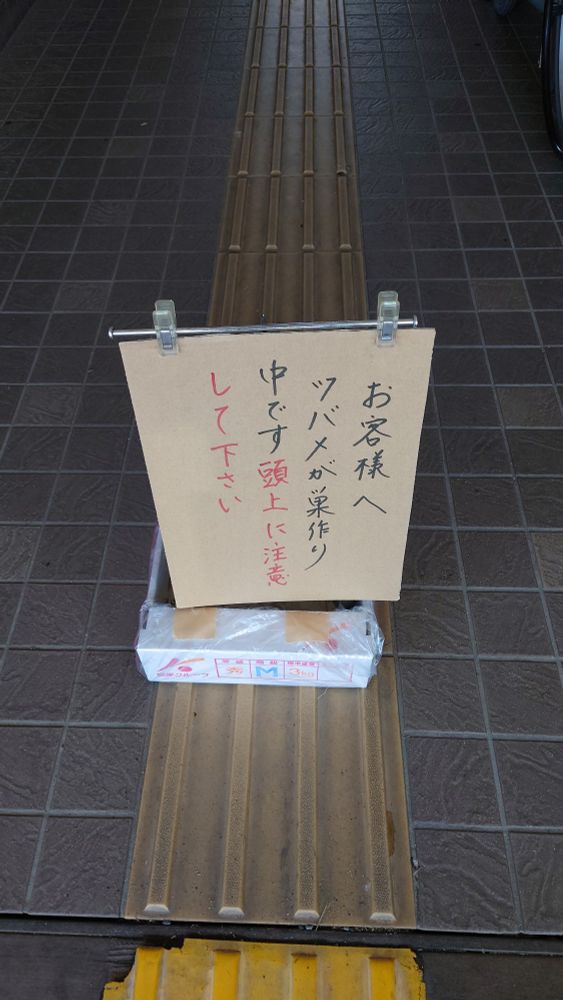 お客様へ
ツバメが巣作り
中です頭上に注意
して下さい
秀
M
3kg